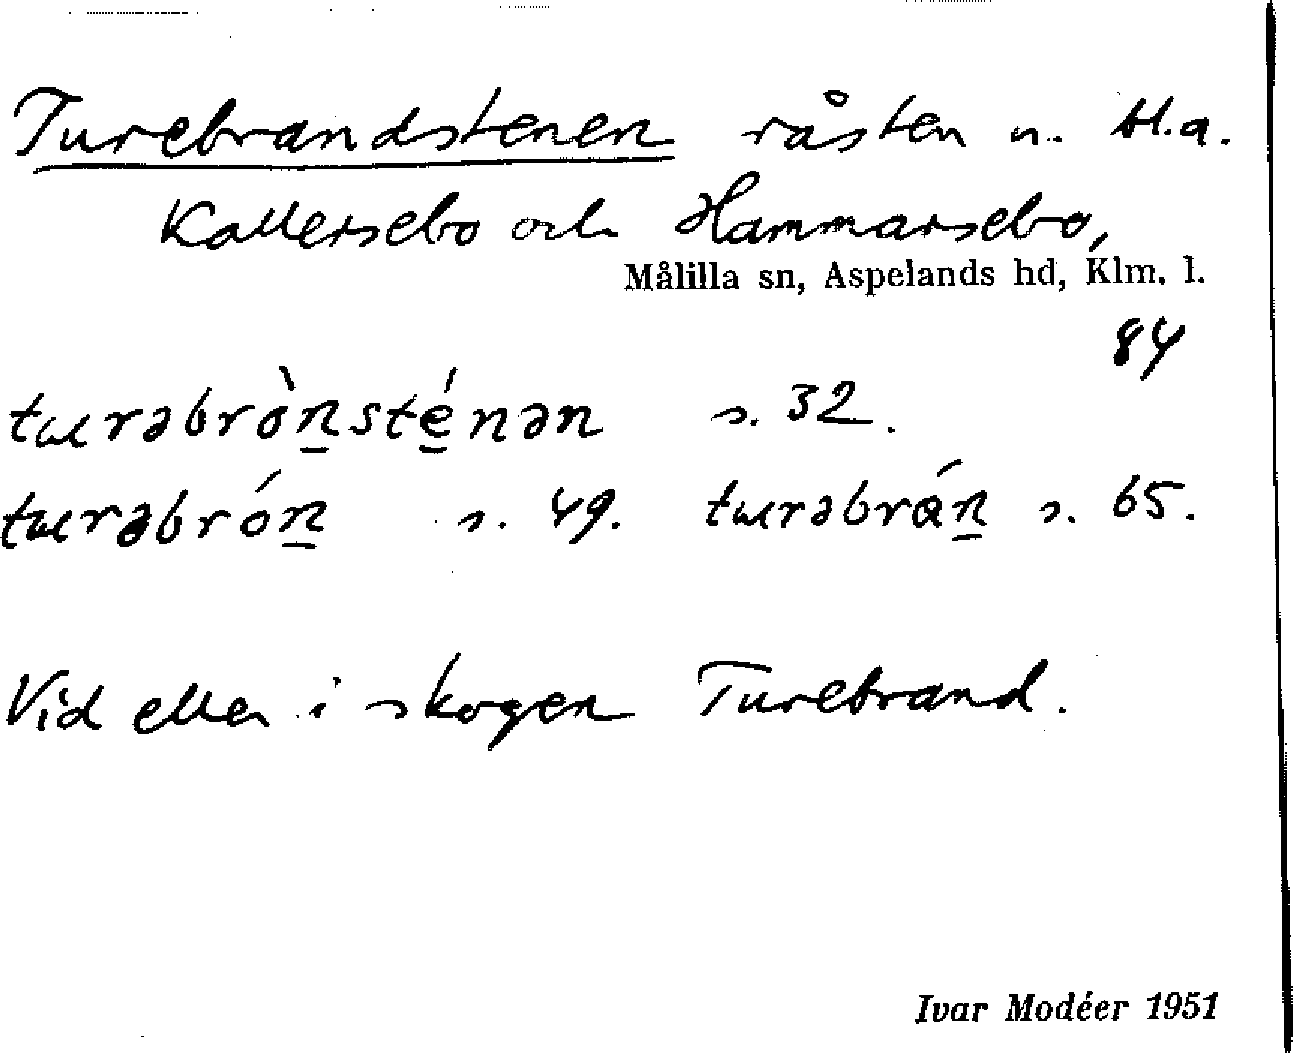 Turebrandstenen råsten m. bl.a.
Kallersebo och Hammarsebo,
Målilla sn, Aspelands hd, Klm. l.
84
turəbrònsténən s. 32.
turəbrón s. 49. turəbrán s. 65.
Vid eller i skogen Turebrand.
Ivar Modéer 1951